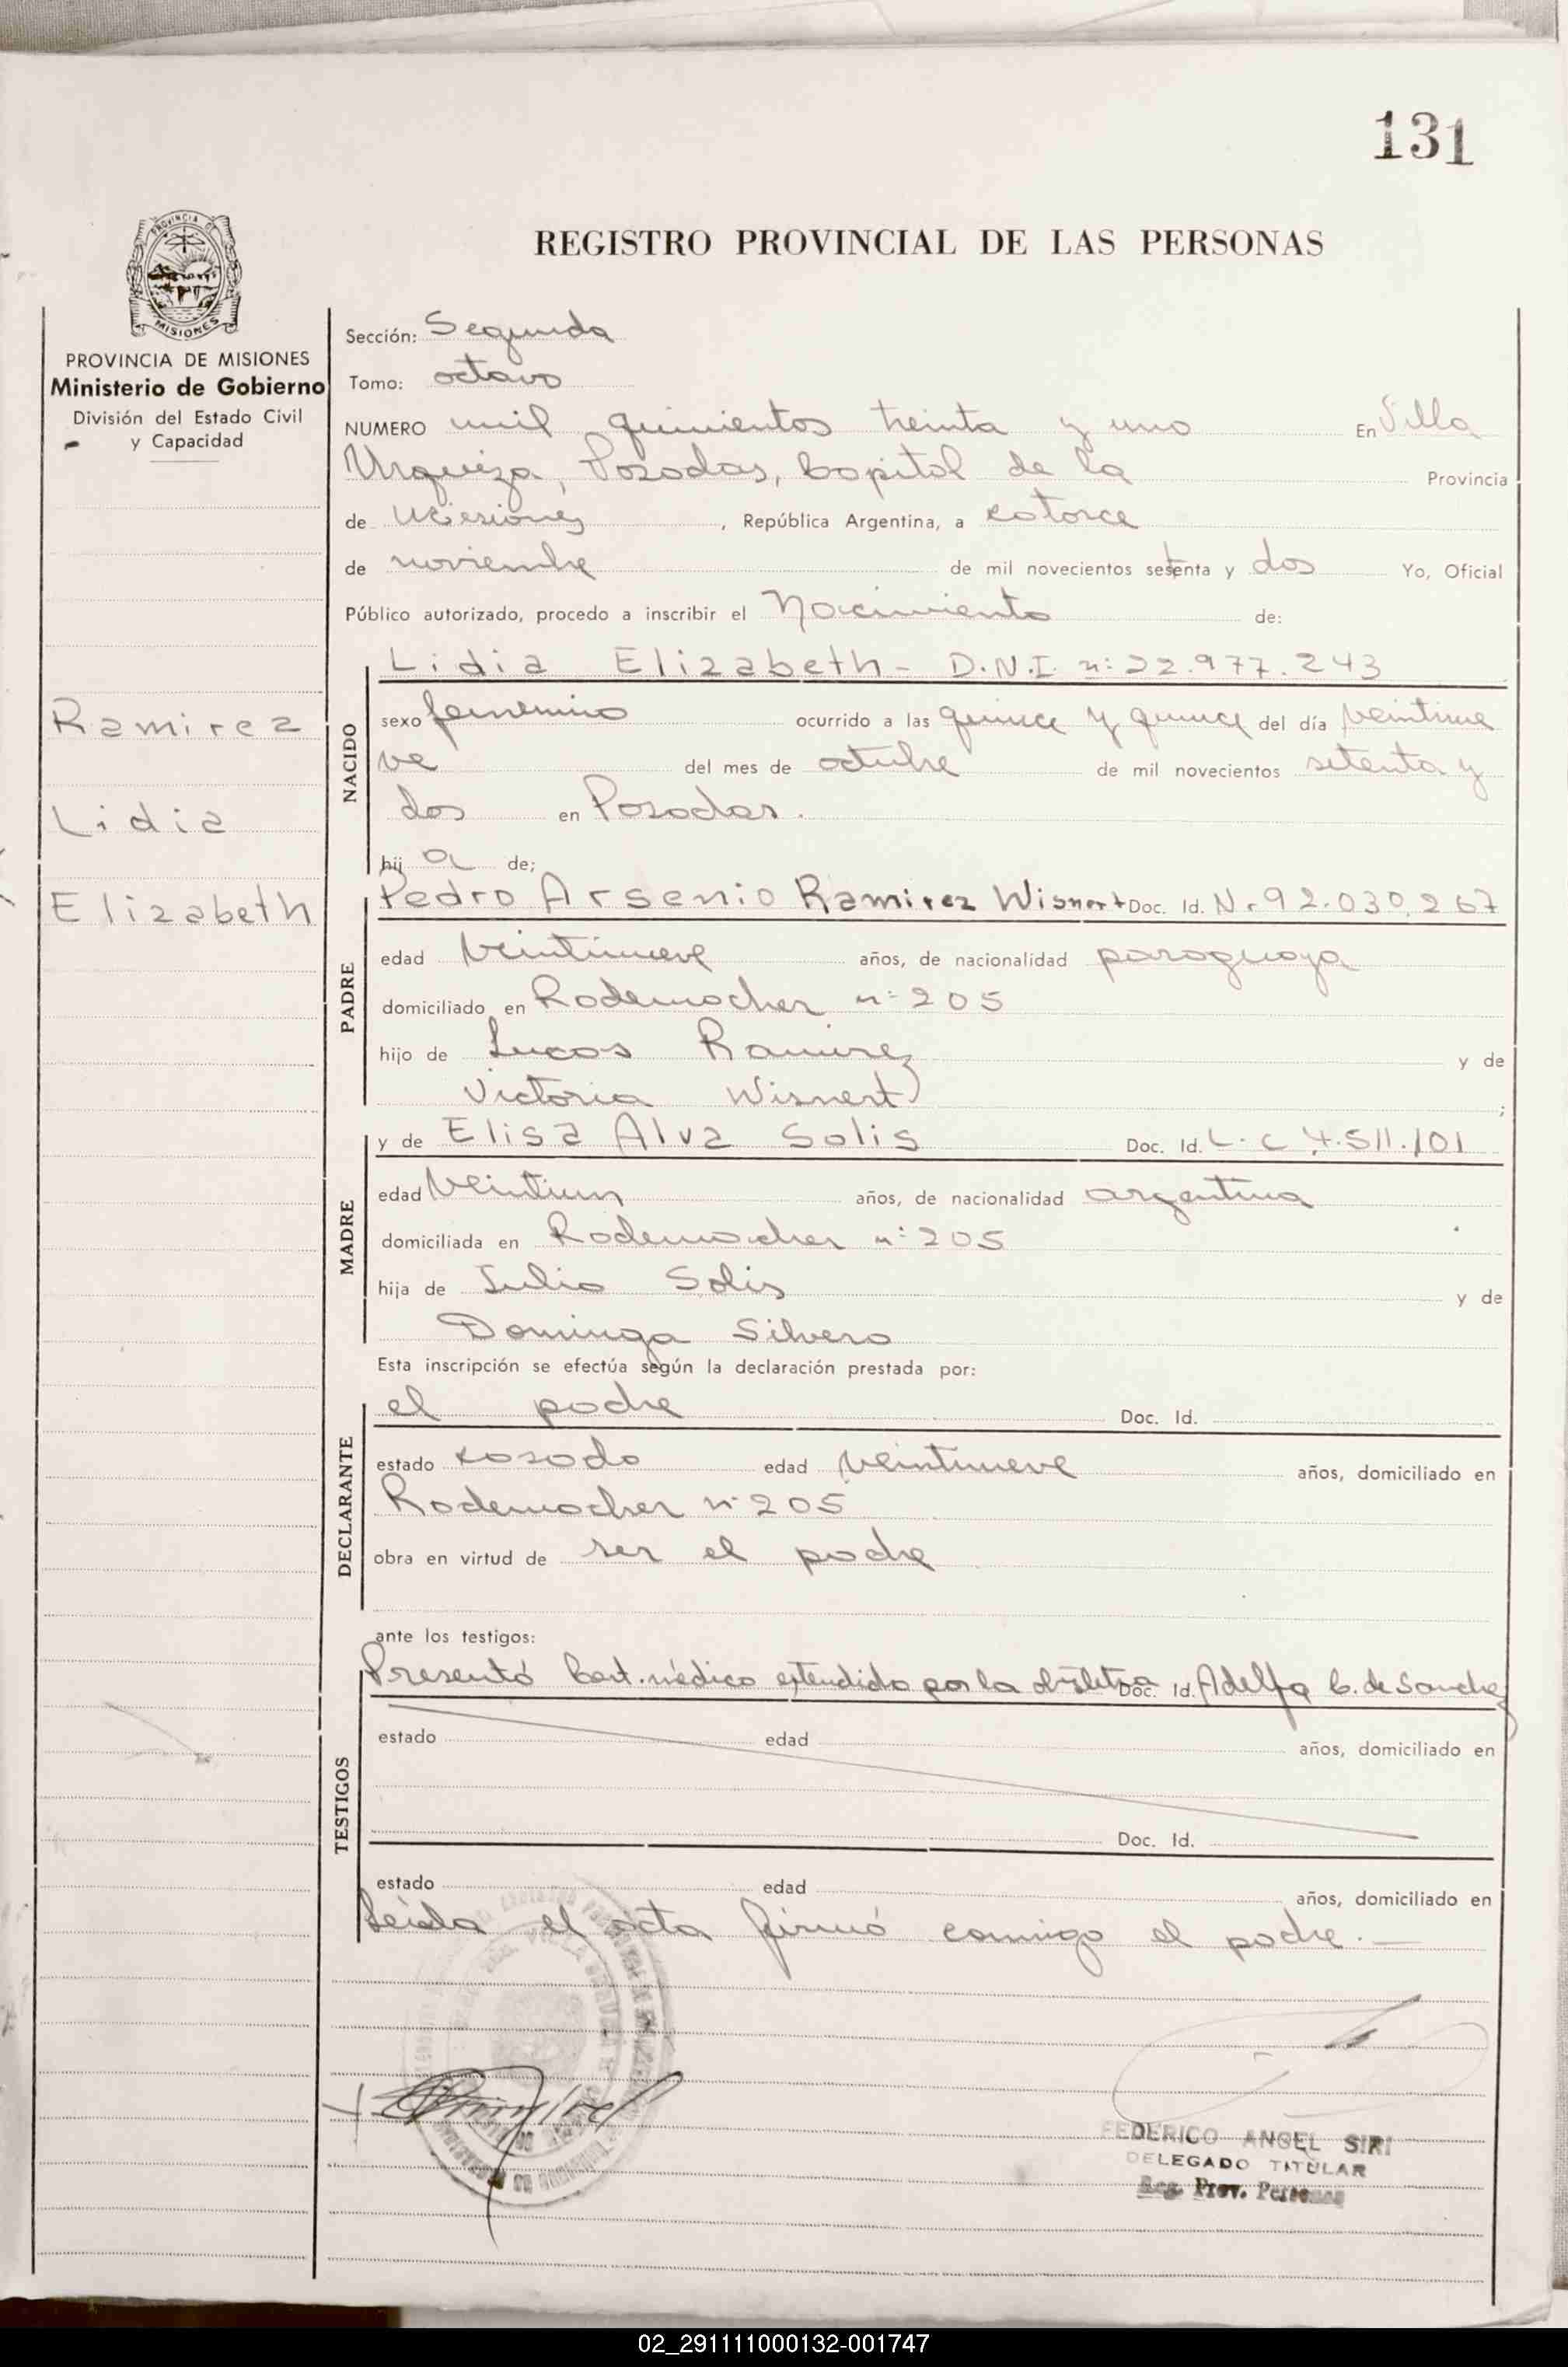 131
REGISTRO PROVINCIAL DE LAS PERSONAS
PROVINCIA DE
MISIONES
PROVINCIA DE MISIONES
Ministerio de Gobierno
División del Estado Civil
y Capacidad
Ramirez
Lidia
Elizabeth
Sección: Segunda
Tomo: octavo
NUMERO mil quinientos treinta y uno En Villa
Urquiza, Posadas, Capital de la Provincia
de Misiones, República Argentina, a catorce
de noviembre de mil novecientos setenta y dos Yo, Oficial
Público autorizado, procedo a inscribir el Nacimiento de:
NACIDO
Lidia Elizabeth - D.N.I. nº 22.977.243
sexo femenino ocurrido a las quince y quince del día veintinue
ve del mes de octubre de mil novecientos setenta y
dos en Posadas.
hij a de;
PADRE
Pedro Arsenio Ramirez Wisnert Doc. Id. Nº 92.030.267
edad veintinueve años, de nacionalidad paraguaya
domiciliado en Rodemacher nº 205
hijo de Lucas Ramirez y de
Victoria Wisnert ;
MADRE
y de Elisa Alva Solis Doc. Id. L. C 4.511.101
edad veintiun años, de nacionalidad argentina
domiciliada en Rodemacher nº 205
hija de Julio Solis y de
Dominga Silvero
Esta inscripción se efectúa según la declaración prestada por:
DECLARANTE
el padre Doc. Id.
estado casado edad veintinueve años, domiciliado en
Rodemacher nº 205
obra en virtud de ser el padre
ante los testigos:
TESTIGOS
Presentó Cert. médico extendido por la obstetra Doc. Id. Adelfa C. de Sanchez
estado edad años, domiciliado en
Doc. Id.
estado edad años, domiciliado en
Leída el acta firmó conmigo el padre. —
FEDERICO ANGEL SIRI
DELEGADO TITULAR
Reg. Prov. Personas
02_291111000132-001747